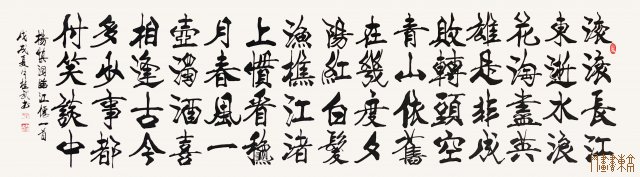 滚滚長江
東逝水浪
花淘盡英
雄是非成
敗轉頭空
青山依舊
在幾度夕
陽紅白髮
漁樵江渚
上慣看穐
月春風一
壺濁酒喜
相逢古今
多少事都
付笑談中
楊慎詞臨江仙一首
戊戌夏月